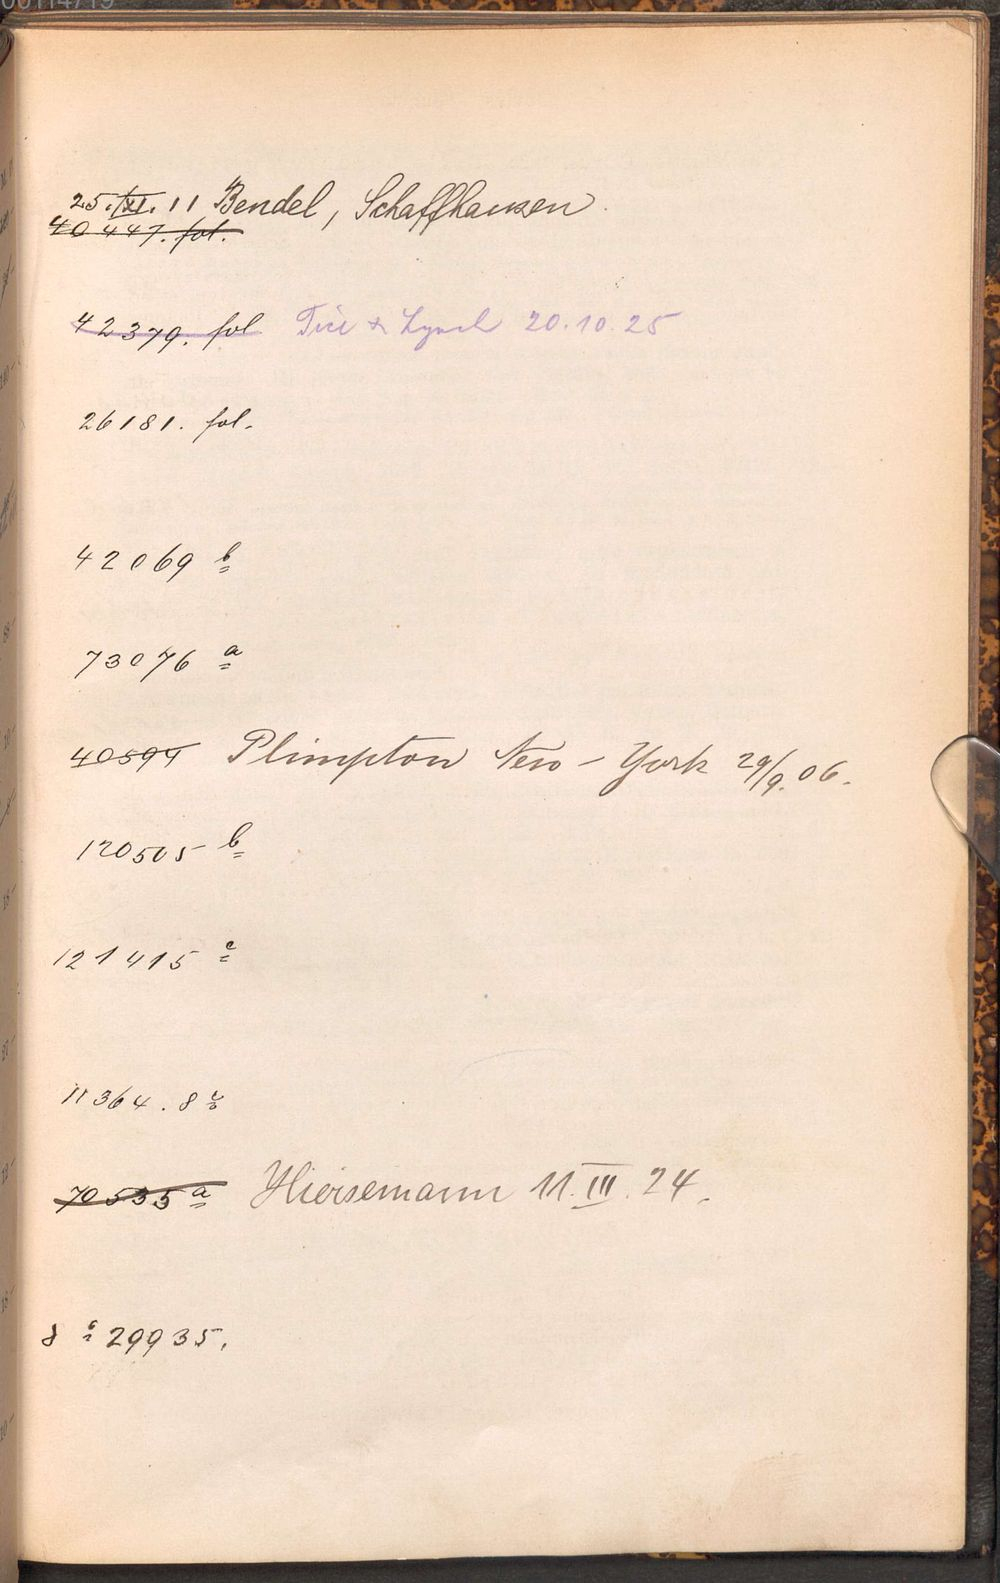 00114719
25. XI. 11 Bendel, Schaffhausen.
40447. fol.
42379. fol Tice & Lynch 20.10.25
26181. fol.
42069 b
73076 a
40594 Plimpton New-York 29/9. 06.
120505 b
121415 c
11364. 8
70535 a Hiersemann 11. III. 24.
8 c 29935.